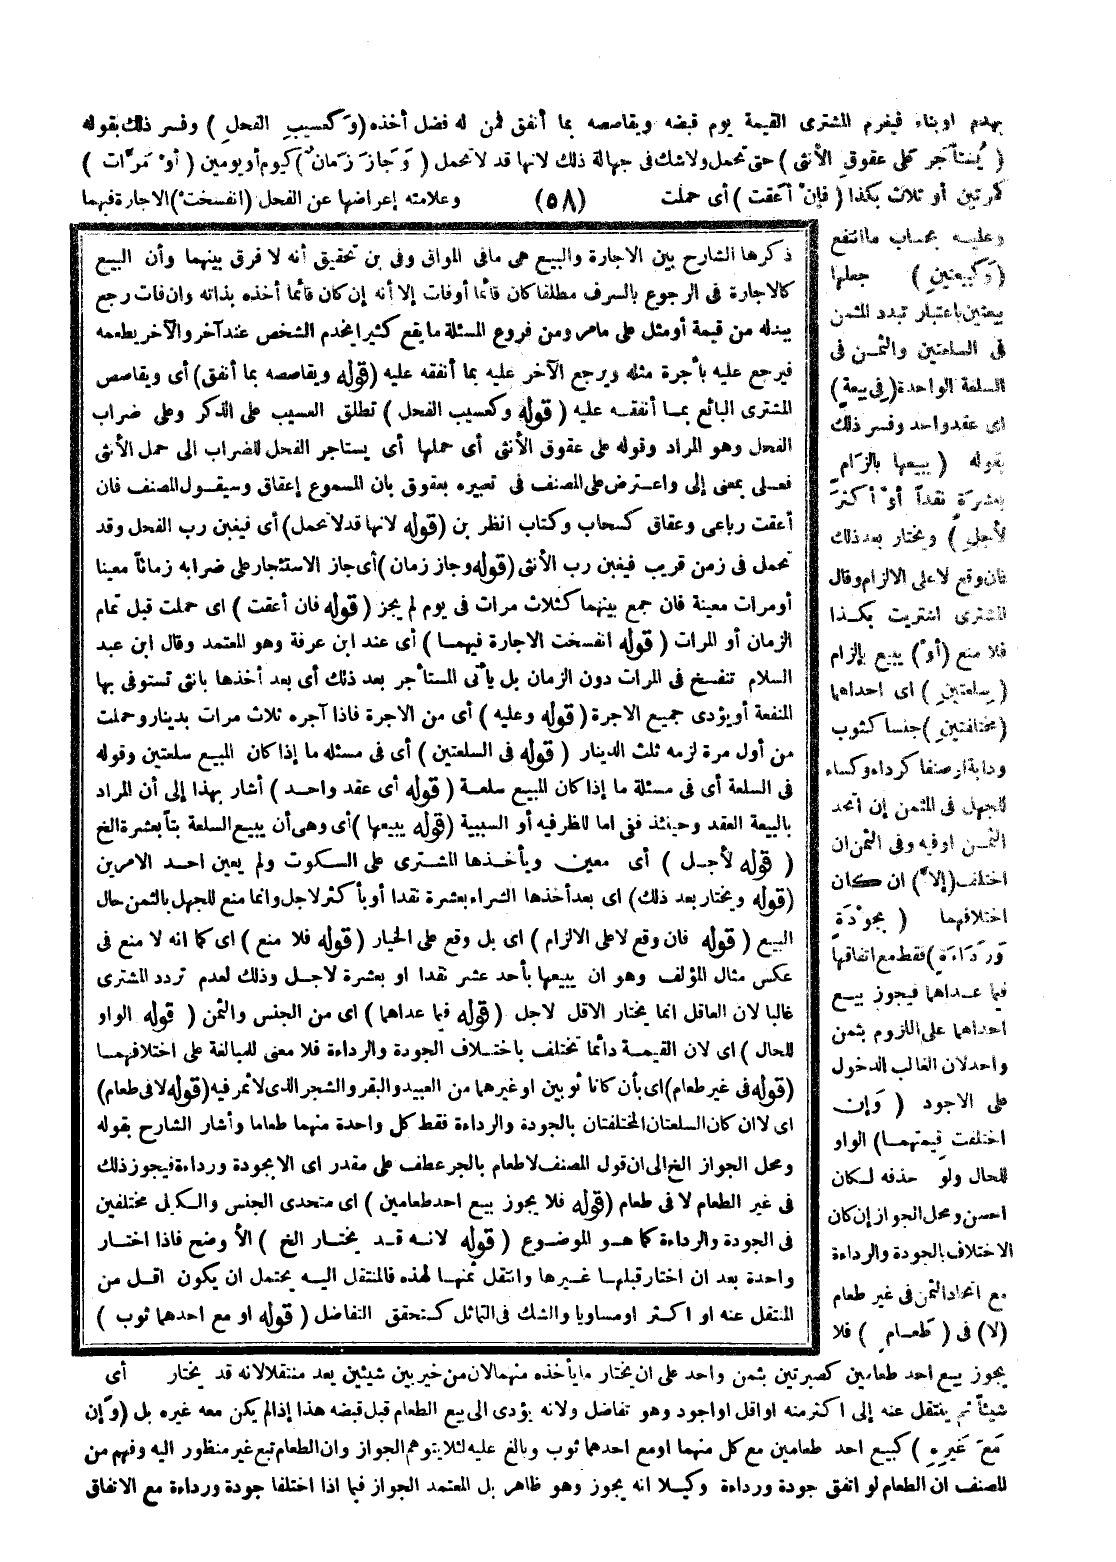 بهدم او بناء فيغرم المشترى القيمة يوم قبضه ويقاصصه بما أنفق فمن له فضل أخذه (وَكَعَسِيبِ الفحلِ) وفسر ذلك بقوله
(يُستأجَر على عقوقِ الأنثى) حتى تحمل ولاشك فى جهالة ذلك لانها قد لا تحمل (وَجَازَ زَمان) كيوم أو يومين (أوْ مَرَّات)
كمرتين أو ثلاث بكذا (فإنْ أعَقت) أى حملت (٥٨) وعلامته إعراضها عن الفحل (انفسختْ) الاجارة فيهما
وعليه بحساب ما انتفع
(وَكَبيعتينِ) جعلها
بيعتين باعتبار تبدد الثمن
فى السلعتين والثمن فى
السلعة الواحدة (فى بيعةٍ)
اى عقد واحد وفسر ذلك
بقوله (يبيعها بالزَامٍ
بعشرَةٍ نقداً أوْ أكثرَ
لأجلٍ) ويختار بعد ذلك
فان وقع لا على الالزام وقال
المشترى اشتريت بكذا
فلا منع (أو) يبيع بإلزام
(سلعتينِ) اى احداهما
(مختلفتينِ) جنسا كثوب
ودابة او صنفا كرداء وكساء
للجهل فى المثمن إن اتحد
الثمن او فيه وفى الثمن ان
اختلف (إلاّ) ان كان
اختلافهما (بجوْدَةٍ
وَرَدَاءَةٍ) فقط مع اتفاقها
فيما عداهما فيجوز بيع
احداهما على اللزوم بثمن
واحد لان الغالب الدخول
على الاجود (وَإن
اختلفت قيمتهما) الواو
للحال ولو حذفه لكان
احسن ومحل الجواز إن كان
الاختلاف بالجودة والرداءة
مع اتحاد الثمن فى غير طعام
(لا) فى (طَعامٍ) فلا
ذكرها الشارح بين الاجارة والبيع هى مافى المواق وفى بن تحقيق أنه لا فرق بينهما وأن البيع
كالاجارة فى الرجوع بالسرف مطلقا كان قائما أو فات إلا أنه إن كان قائما أخذه بذاته وان فات رجع
ببدله من قيمة أو مثل على مامر ومن فروع المسئلة ما يقع كثيرا يخدم الشخص عند آخر والآخر يطعمه
فيرجع عليه بأجرة مثله ويرجع الآخر عليه بما أنفقه عليه (قوله ويقاصصه بما أنفق) أى ويقاصص
المشترى البائع بما أنفقه عليه (قوله وكعسيب الفحل) تطلق العسيب على الذكر وعلى ضراب
الفحل وهو المراد وقوله على عقوق الأنثى أى حملها أى يستاجر الفحل للضراب الى حمل الأنثى
فعلى بمعنى إلى واعترض على المصنف فى تعبيره بعقوق بان المسموع إعقاق وسيقول المصنف فان
أعقت رباعى وعقاق كسحاب وكتاب انظر بن (قوله لانها قد لا تحمل) أى فيغبن رب الفحل وقد
تحمل فى زمن قريب فيغبن رب الأنثى (قوله وجاز زمان) أى جاز الاستئجار على ضرابه زماناً معينا
أو مرات معينة فان جمع بينهما كثلاث مرات فى يوم لم يجز (قوله فان أعقت) اى حملت قبل تمام
الزمان أو المرات (قوله انفسخت الاجارة فيهما) أى عند ابن عرفة وهو المعتمد وقال ابن عبد
السلام تنفسخ فى المرات دون الزمان بل يأتى المستأجر بعد ذلك أى بعد أخذها بانثى تستوفى بها
المنفعة أو يؤدى جميع الاجرة (قوله وعليه) أى من الاجرة فاذا آجره ثلاث مرات بدينار وحملت
من أول مرة لزمه ثلث الدينار (قوله فى السلعتين) أى فى مسئله ما إذا كان المبيع سلعتين وقوله
فى السلعة أى فى مسئلة ما إذا كان المبيع سلعة (قوله أى عقد واحد) أشار بهذا إلى أن المراد
بالبيعة العقد وحينئذ ففى اما للظرفيه أو السببية (قوله يبيعها) أى وهى أن يبيع السلعة بتا بعشرة الخ
(قوله لأجل) أى معين ويأخذها المشترى على السكوت ولم يعين احد الامرين
(قوله ويختار بعد ذلك) اى بعد أخذها الشراء بعشرة نقدا أو بأكثر لاجل وانما منع للجهل بالثمن حال
البيع (قوله فان وقع لاعلى الالزام) اى بل وقع على الخيار (قوله فلا منع) اى كما انه لا منع فى
عكس مثال المؤلف وهو ان يبيعها بأحد عشر نقدا او بعشرة لاجل وذلك لعدم تردد المشترى
غالبا لان العاقل انما يختار الاقل لاجل (قوله فيما عداهما) اى من الجنس والثمن (قوله الواو
للحال) اى لان القيمة دائما تختلف باختلاف الجودة والرداءة فلا معنى للمبالغة على اختلافهما
(قوله فى غير طعام) اى بأن كانا ثوبين او غيرهما من العبيد والبقر والشجر الذى لا ثمر فيه (قوله لا فى طعام)
اى لا ان كان السلعتان المختلفتان بالجودة والرداءة فقط كل واحدة منهما طعاما وأشار الشارح بقوله
ومحل الجواز الخ الى ان قول المصنف لا طعام بالجر عطف على مقدر اى الا بجودة ورداءة فيجوز ذلك
فى غير الطعام لا فى طعام (قوله فلا يجوز بيع احد طعامين) اى متحدى الجنس والكيل مختلفين
فى الجودة والرداءة كما هو الموضوع (قوله لانه قد يختار الخ) الأوضح فاذا اختار
واحدة بعد ان اختار قبلها غيرها وانتقل ثمنها لهذه فالمنتقل اليه يحتمل ان يكون اقل من
المنتقل عنه او اكثر او مساويا والشك فى التماثل كتحقق التفاضل (قوله او مع احدهما ثوب)
يجوز بيع احد طعامين كصبرتين بثمن واحد على ان يختار ما يأخذه منهما لان من خير بين شيئين يعد منتقلا لانه قد يختار أى
شيئاً ثم ينتقل عنه إلى اكثر منه او اقل او اجود وهو تفاضل ولانه يؤدى الى بيع الطعام قبل قبضه هذا إذا لم يكن معه غيره بل (وَإن
مَعَ غَيرِهِ) كبيع احد طعامين مع كل منهما او مع احدهما ثوب وبالغ عليه لئلا يتوهم الجواز وان الطعام تبع غير منظور اليه وفهم من
المصنف ان الطعام لو اتفق جودة ورداءة وكيلا انه يجوز وهو ظاهر بل المعتمد الجواز فيما اذا اختلفا جودة ورداءة مع الاتفاق